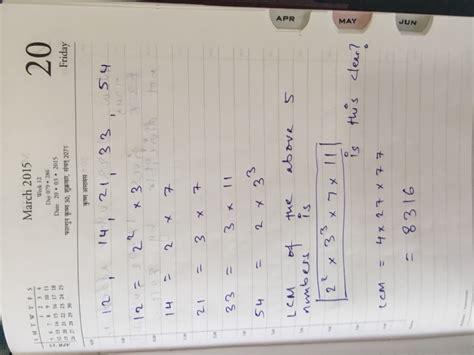 March 2015
Week 12
Day 079 - 286
Date 20 - 03 - 2015
20
Friday
12, 14, 21, 33, 54
12 = 2² × 3
14 = 2 × 7
21 = 3 × 7
33 = 3 × 11
54 = 2 × 3³
LCM of the above 5
numbers is
2² × 3³ × 7 × 11
is this clear?
LCM = 4 × 27 × 77
= 8316
APR
MAY
JUN